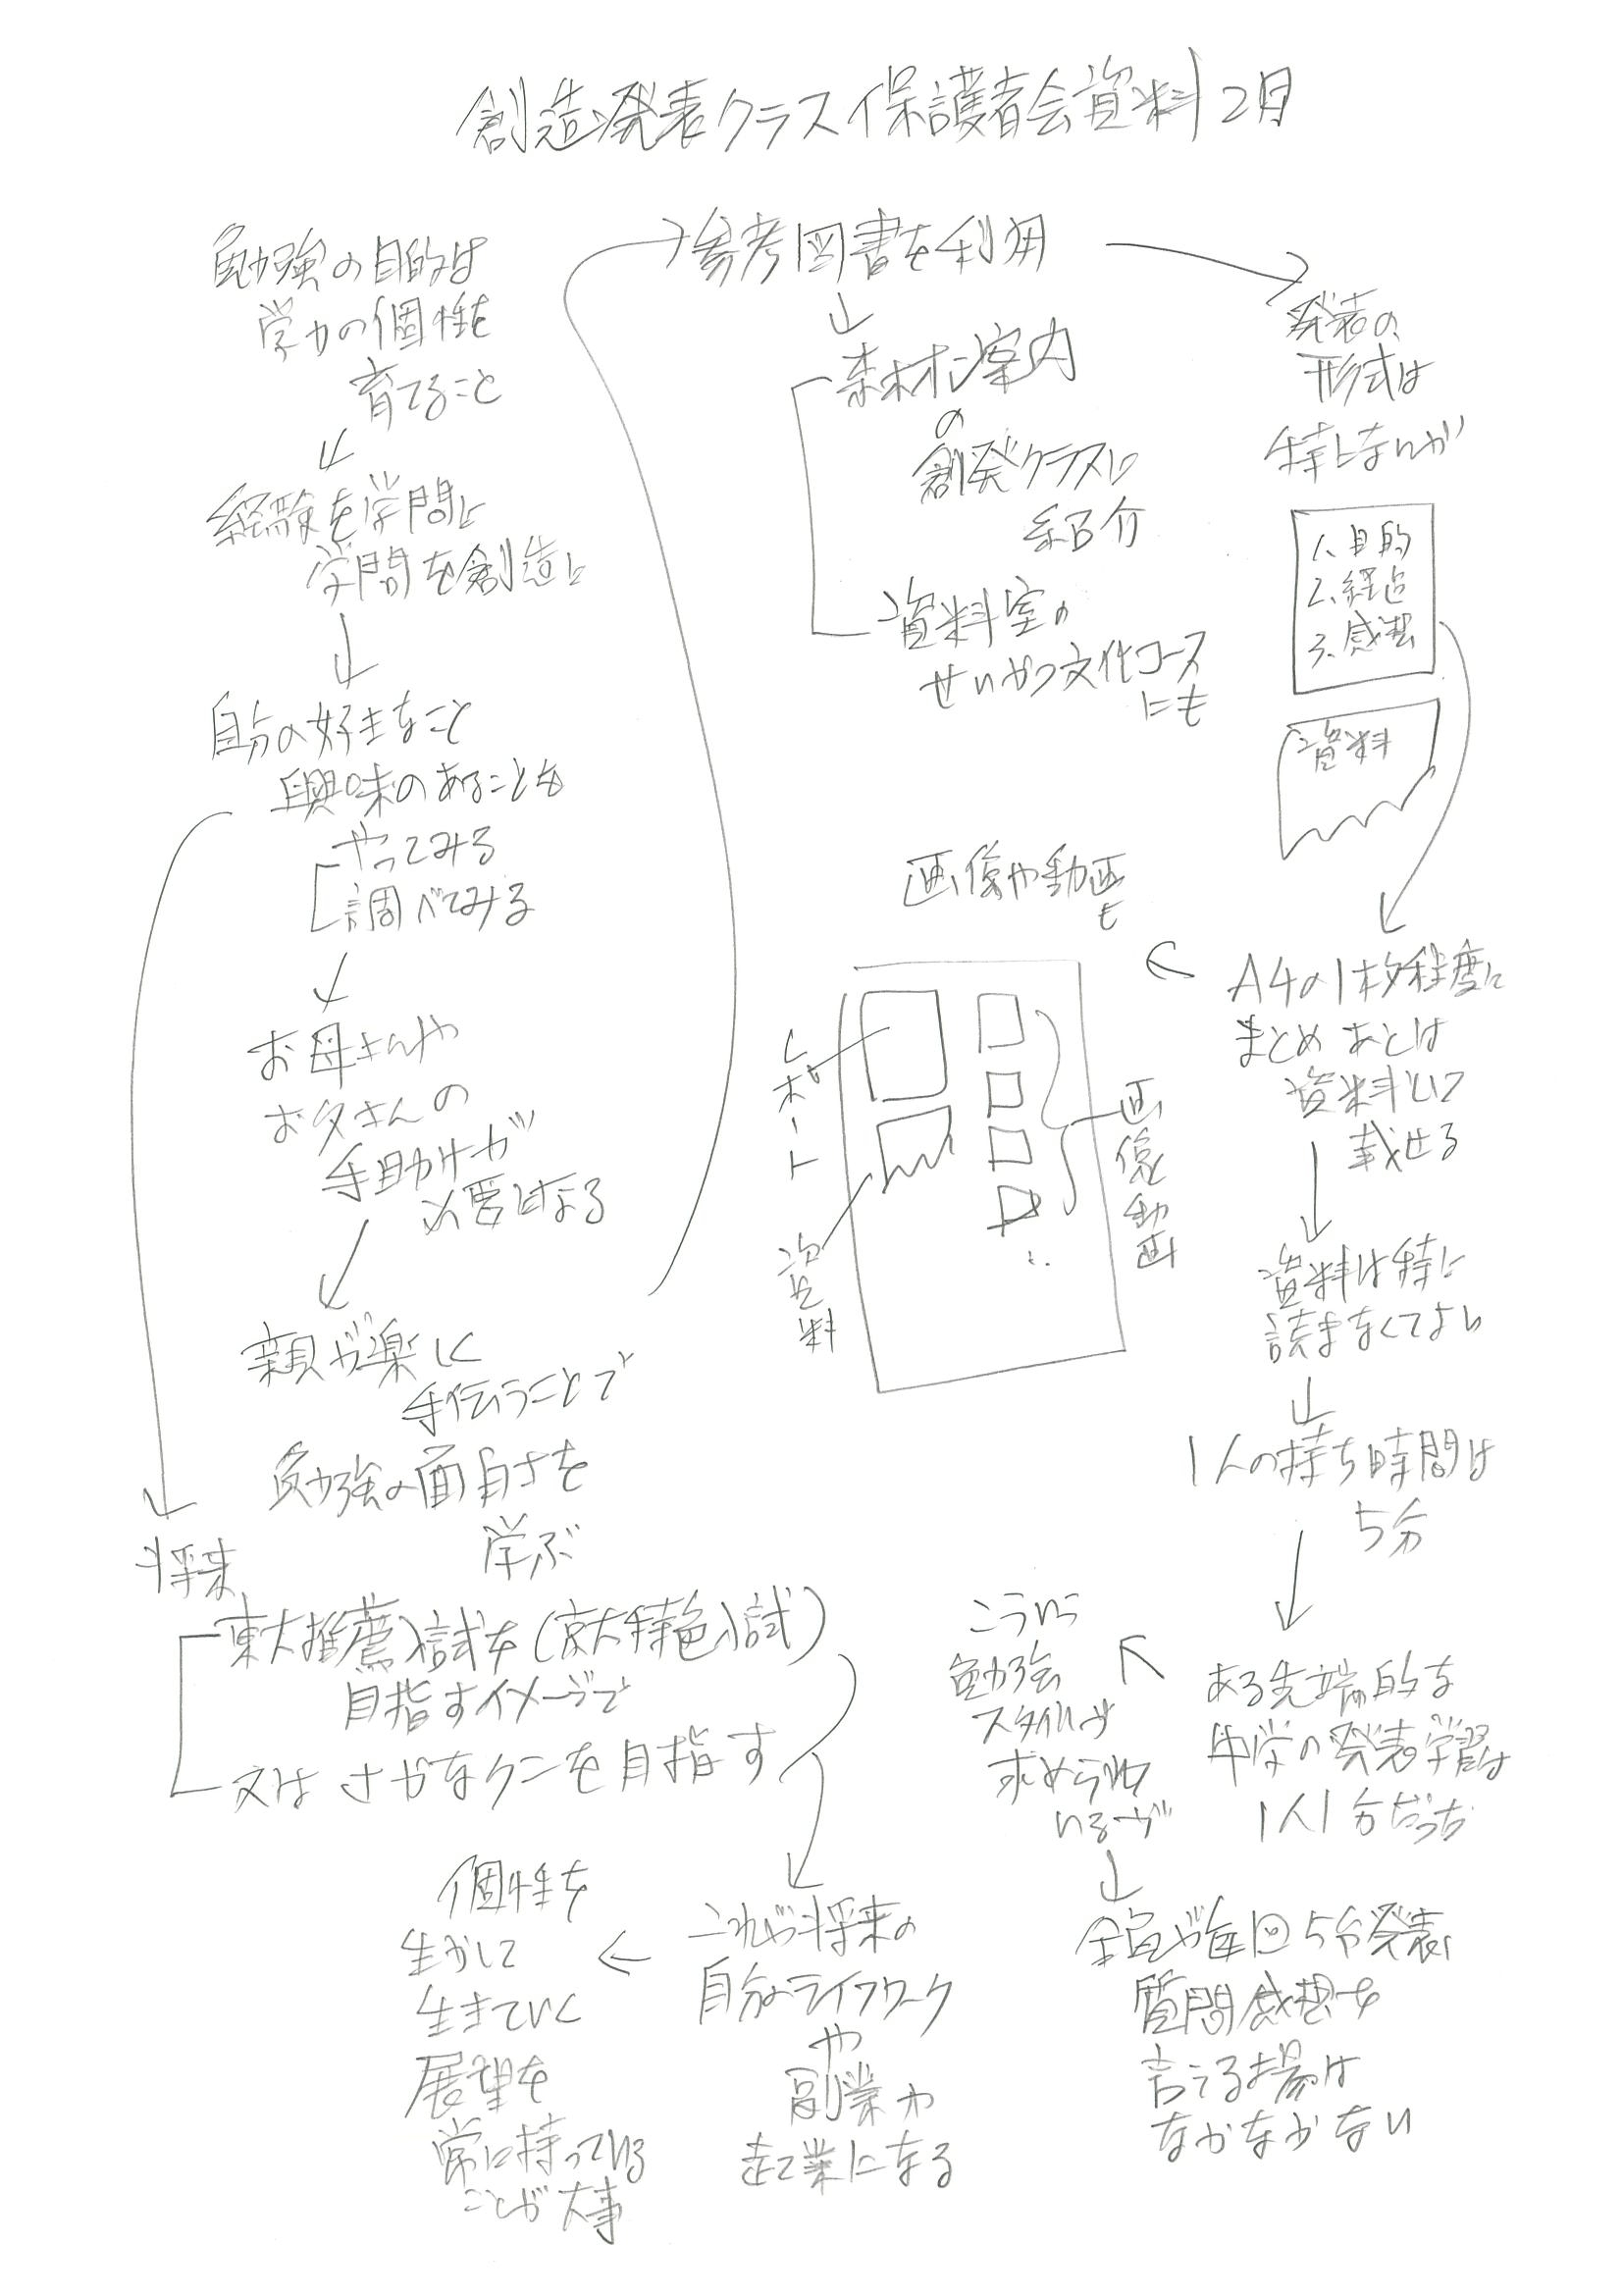 創造発表クラス保護者会資料2月
勉強の目的は
学力の個性を
育てること
経験を学問に
学問を創造に
自分の好きなこと
興味のあることを
やってみる
調べてみる
お母さんや
お父さんの
手助けが
必要になる
親が楽しく
手伝うことで
勉強の面白さを
学ぶ
将来
東大推薦入試を(京大特色入試)
目指すイメージで
又はさかなクンを目指す
これが将来の
自分のライフワーク
や
副業や
起業になる
個性を
生かして
生きていく
展望を
常に持っている
ことが大事
参考図書を利用
素材オン案内
の
創発クラスに
紹介
資料室の
せいかつ文化コース
にも
発表の
形式は
特にないが
1、目的
2、経過
3、感想
資料
A4の1枚程度に
まとめ あとは
資料として
載せる
画像や動画
も
レポート
資料
画像動画
資料は特に
読まなくてよい
1人の持ち時間は
5分
ある先端的な
中学の発表学習は
1人1分だった
こういう
勉強
スタイルが
求められて
いるが
全員が毎回5分発表し
質問感想を
言える場は
なかなかない